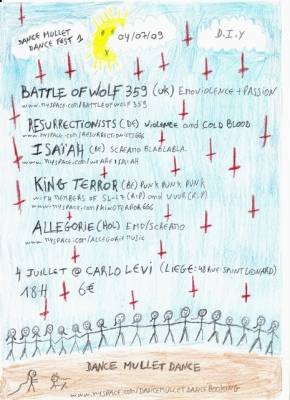 DANCE MULLET
DANCE FEST 1
04/07/09
D.I.Y
BATTLE OF WOLF 359 (UK) EMOVIOLENCE + PASSION
www.myspace.com/battleofwolf359
RESURRECTIONISTS (DE) VIOLENCE AND COLD BLOOD
www.myspace.com/resurrectionists666
ISAÏAH (BE) SCREAMO BLABLABLA
www.myspace.com/weareisaiah
KING TERROR (BE) PUNK PUNK PUNK
WITH MEMBERS OF SL-27 (RIP) AND VUUR (RIP)
www.myspace.com/kingterror666
ALLEGORIE (HOL) EMO/SCREAMO
www.myspace.com/allegoriemusic
4 JUILLET @ CARLO LEVI (LIEGE: 48 RUE SAINT LEONARD)
18H 6€
DANCE MULLET DANCE
www.myspace.com/dancemulletdancebooking